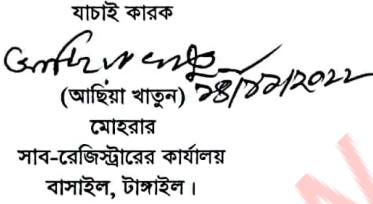 যাচাই কারক
(আছিয়া খাতুন)
মোহরার
সাব-রেজিস্ট্রারের কার্যালয়
বাসাইল, টাঙ্গাইল।